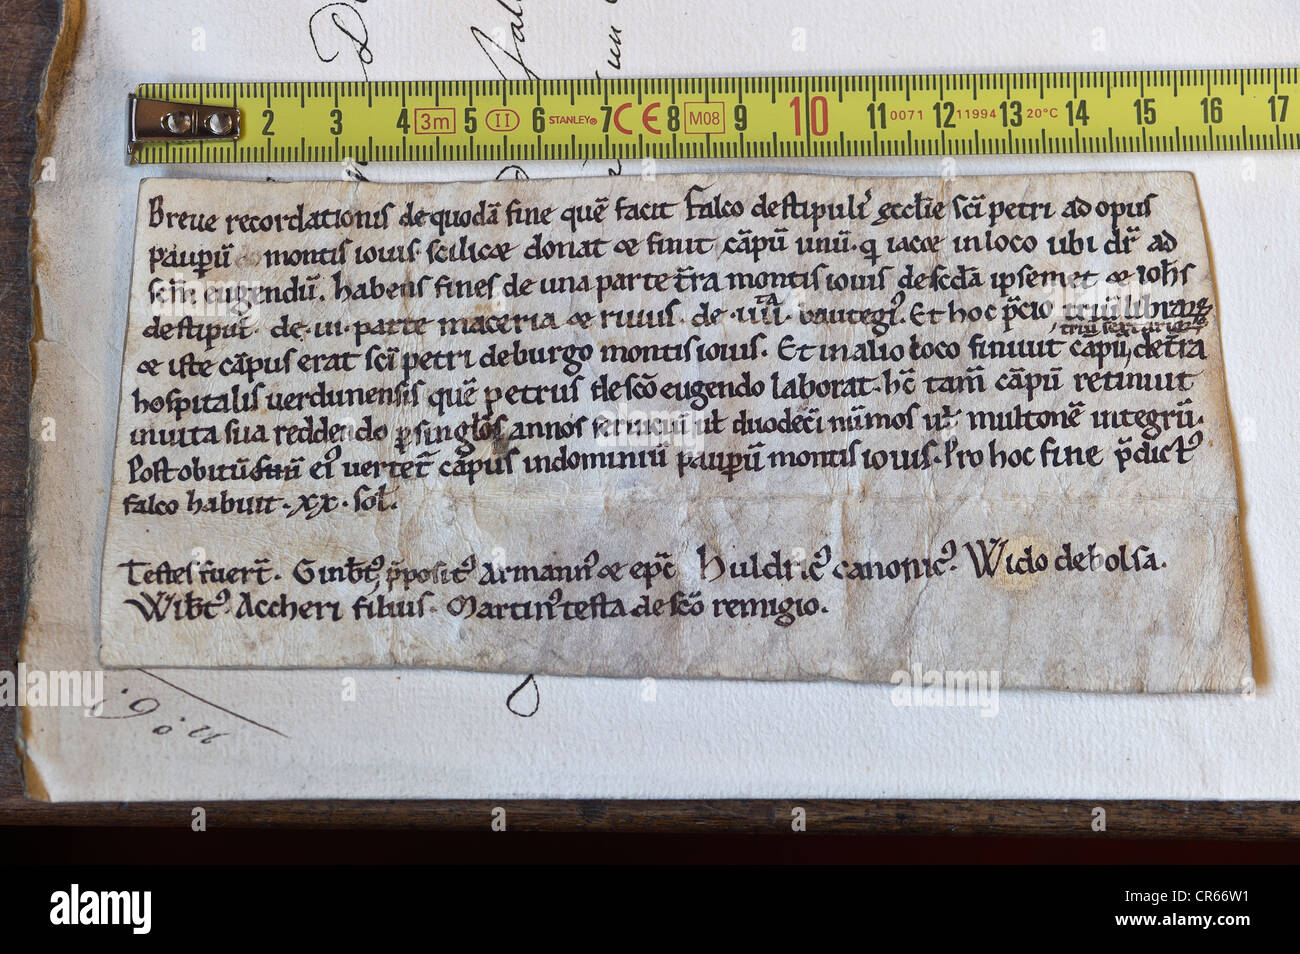 2 3 4 3m 5 II 6 STANLEY® 7 CE 8 M08 9 10 11 0071 12 11994 13 20°C 14 15 16 17
Breue recordationis de quodā fine quē facit falco destipuli' ecclie sci petri ad opus
paupū montis iouis. scilicæ donat æ finit cāpū unū. q iacæ in loco ubi dr ad
scm eugendū. habens fines de una parte tra montis iouis de scda ipsemet æ ioh's
destiput. de .iii. parte maceria æ riuus. de .iiii. Et hoc pcio triū libraꝝ
triū sextarioꝝ
æ iste cāpus erat sci petri de burgo montis iouis. Et in alio loco finiuit cāpū, de tra
hospitalis uerdunensis quē petrus de sco eugendo laborat. hc tam cāpū retinuit
in uita sua reddendo p singlos annos seruiciū ul duodeci nūmos ul multonē integrū.
Post obitū ei' uertet cāpus in dominiū paupū montis iouis. Pro hoc fine pdict'
falco habuit .xx. sol.
Testes fuert. Ginbt' pposit' Armann' æ epc Huldric' canonic'. Wido de bolsa.
Wibt'. Accheri filius. Martin' testa de sco remigio.
n.° 6.
alamy
Image ID: CR66W1
www.alamy.com